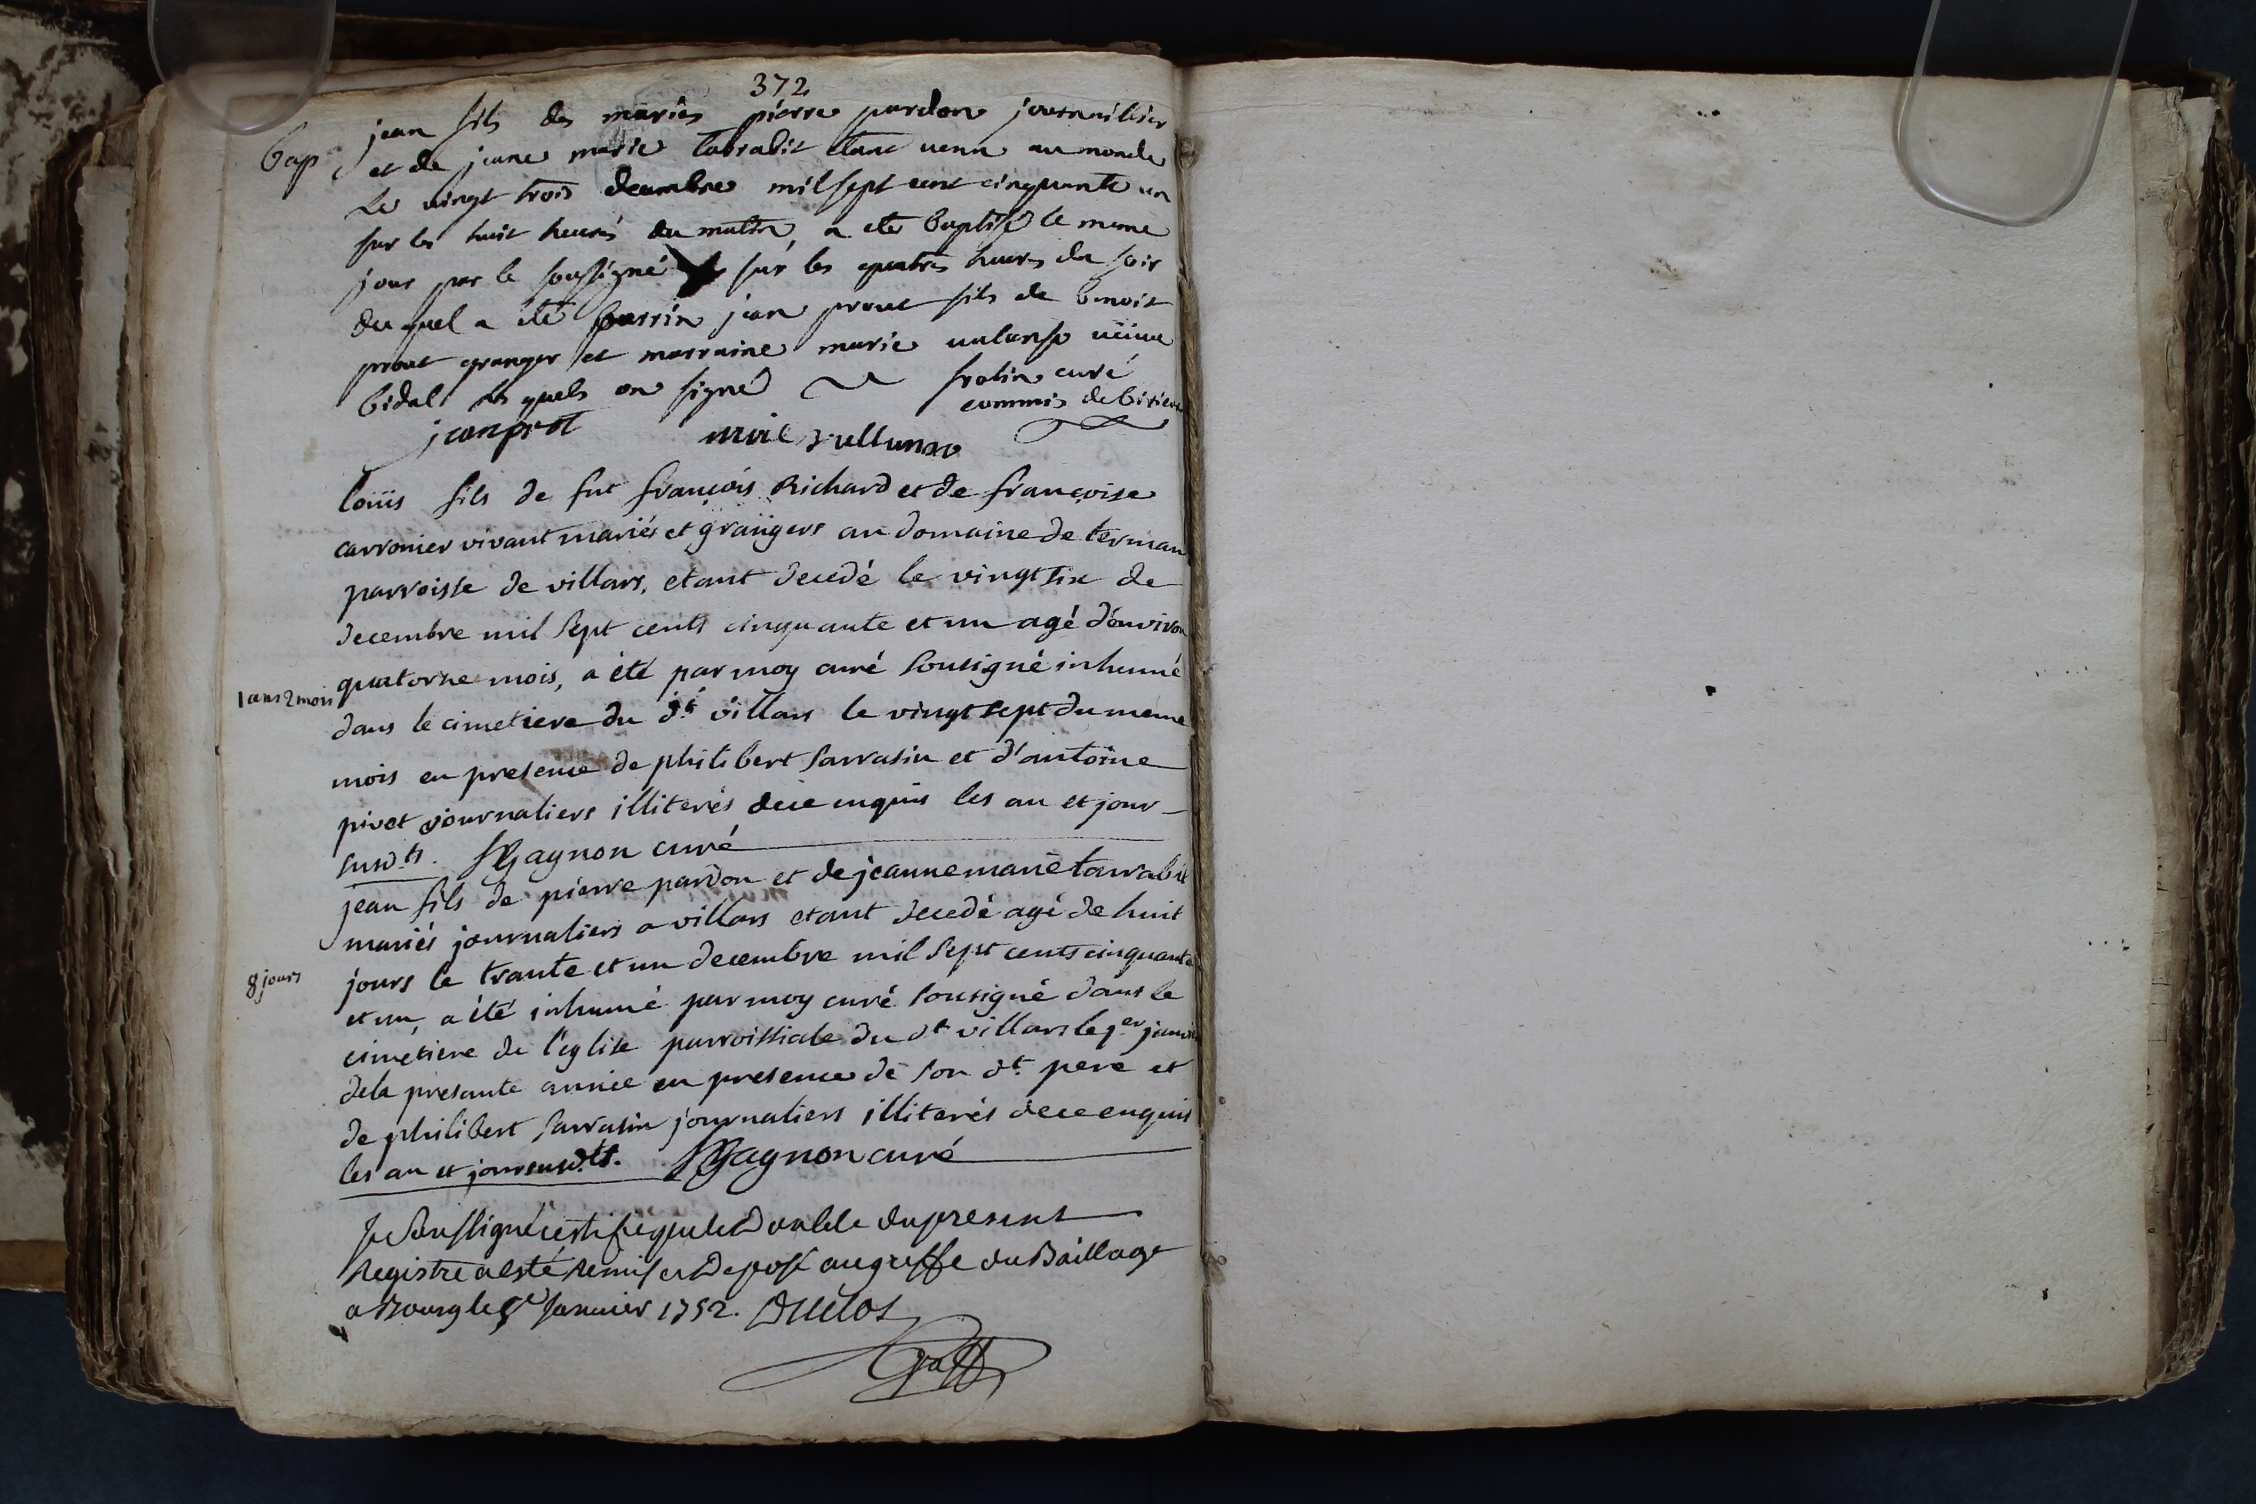 372
bap
jean fils des mariés pierre pardon journalier
et de jeane marie tarrabit etant venu au monde
le vingt trois decembre mil sept cent cinquante un
sur les huit heures du matin, a eté baptisé le meme
jour par le soussigné sur les quatres heures du soir
du quel a été parrin jean prout fils de benoit
prout granger et marraine marie valanso veuve
bidal les quels on signé frolin curé
commis de
jean prot marie vullanso
loüis fils de fut françois Richard et de françoise
carronier vivant mariés et graügers au domaine de terman
parroisse de villars, etant decedé le vingt six de
decembre mil sept cents cinquante et un agé d'environ
quatorze mois, a été par moy curé sousigné inhumé
1 ans 2 mois
dans le cimetiere du dt villars le vingt sept du meme
mois en presence de philibert sarrasin et d'antoine
pivet journaliers illiterés de ce enquis les an et jour
susdts. Gagnon curé
jean fils de pierre pardon et de jeanne marie tarrabit
mariés journaliers a villars etant decedé agé de huit
8 jours
jours le trante et un decembre mil sept cents cinquante
et un, a été inhumé par moy curé sousigné dans le
cimetiere de l'eglise parroissiale du dt villars le 1er janvier
de la presante année en presence de son dt pere et
de philibert sarrasin journaliers illiterés de ce enquis
les an et jour susdts. Gagnon curé
Je soussigné certifie que le Double du present
Registre a esté Remis et Deposé au greffe du Baillage
a Bourg le Janvier 1752. Duclos